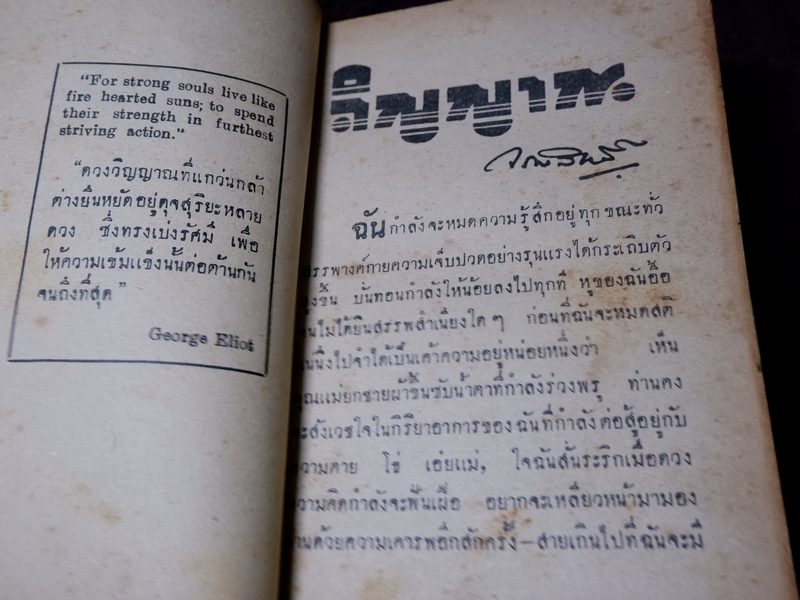 "For strong souls live like
fire hearted suns; to spend
their strength in furthest
striving action."
"ดวงวิญญาณที่แกว่นกล้า
ต่างยืนหยัดอยู่ดุจสุริยะหลาย
ดวง ซึ่งทรงเบ่งรัศมี เพื่อ
ให้ความเข้มแข็งนั้นต่อต้านกัน
จนถึงที่สุด"
George Eliot
วิญญาณ
ฉันกำลังจะหมดความรู้สึกอยู่ทุกขณะทั่ว
สรรพางค์กายความเจ็บปวดอย่างรุนแรงได้กระเถิบตัว
ขึ้น บั่นทอนกำลังให้น้อยลงไปทุกที หูของฉันอื้อ
ไม่ได้ยินสรรพสำเนียงใด ๆ ก่อนที่ฉันจะหมดสติ
แน่นิ่งไปจำได้เป็นเค้าความอยู่หน่อยหนึ่งว่า เห็น
คุณแม่ยกชายผ้าขึ้นซับน้ำตาที่กำลังร่วงพรู ท่านคง
สังเวชใจในกิริยาอาการของฉันที่กำลังต่อสู้อยู่กับ
ความตาย โธ่ เอ๋ยแม่, ใจฉันสั่นระริกเมื่อดวง
ความคิดกำลังจะฟั่นเฝือ อยากจะเหลียวหน้ามามอง
ด้วยความเคารพอีกสักครั้ง—สายเกินไปที่ฉันจะมี